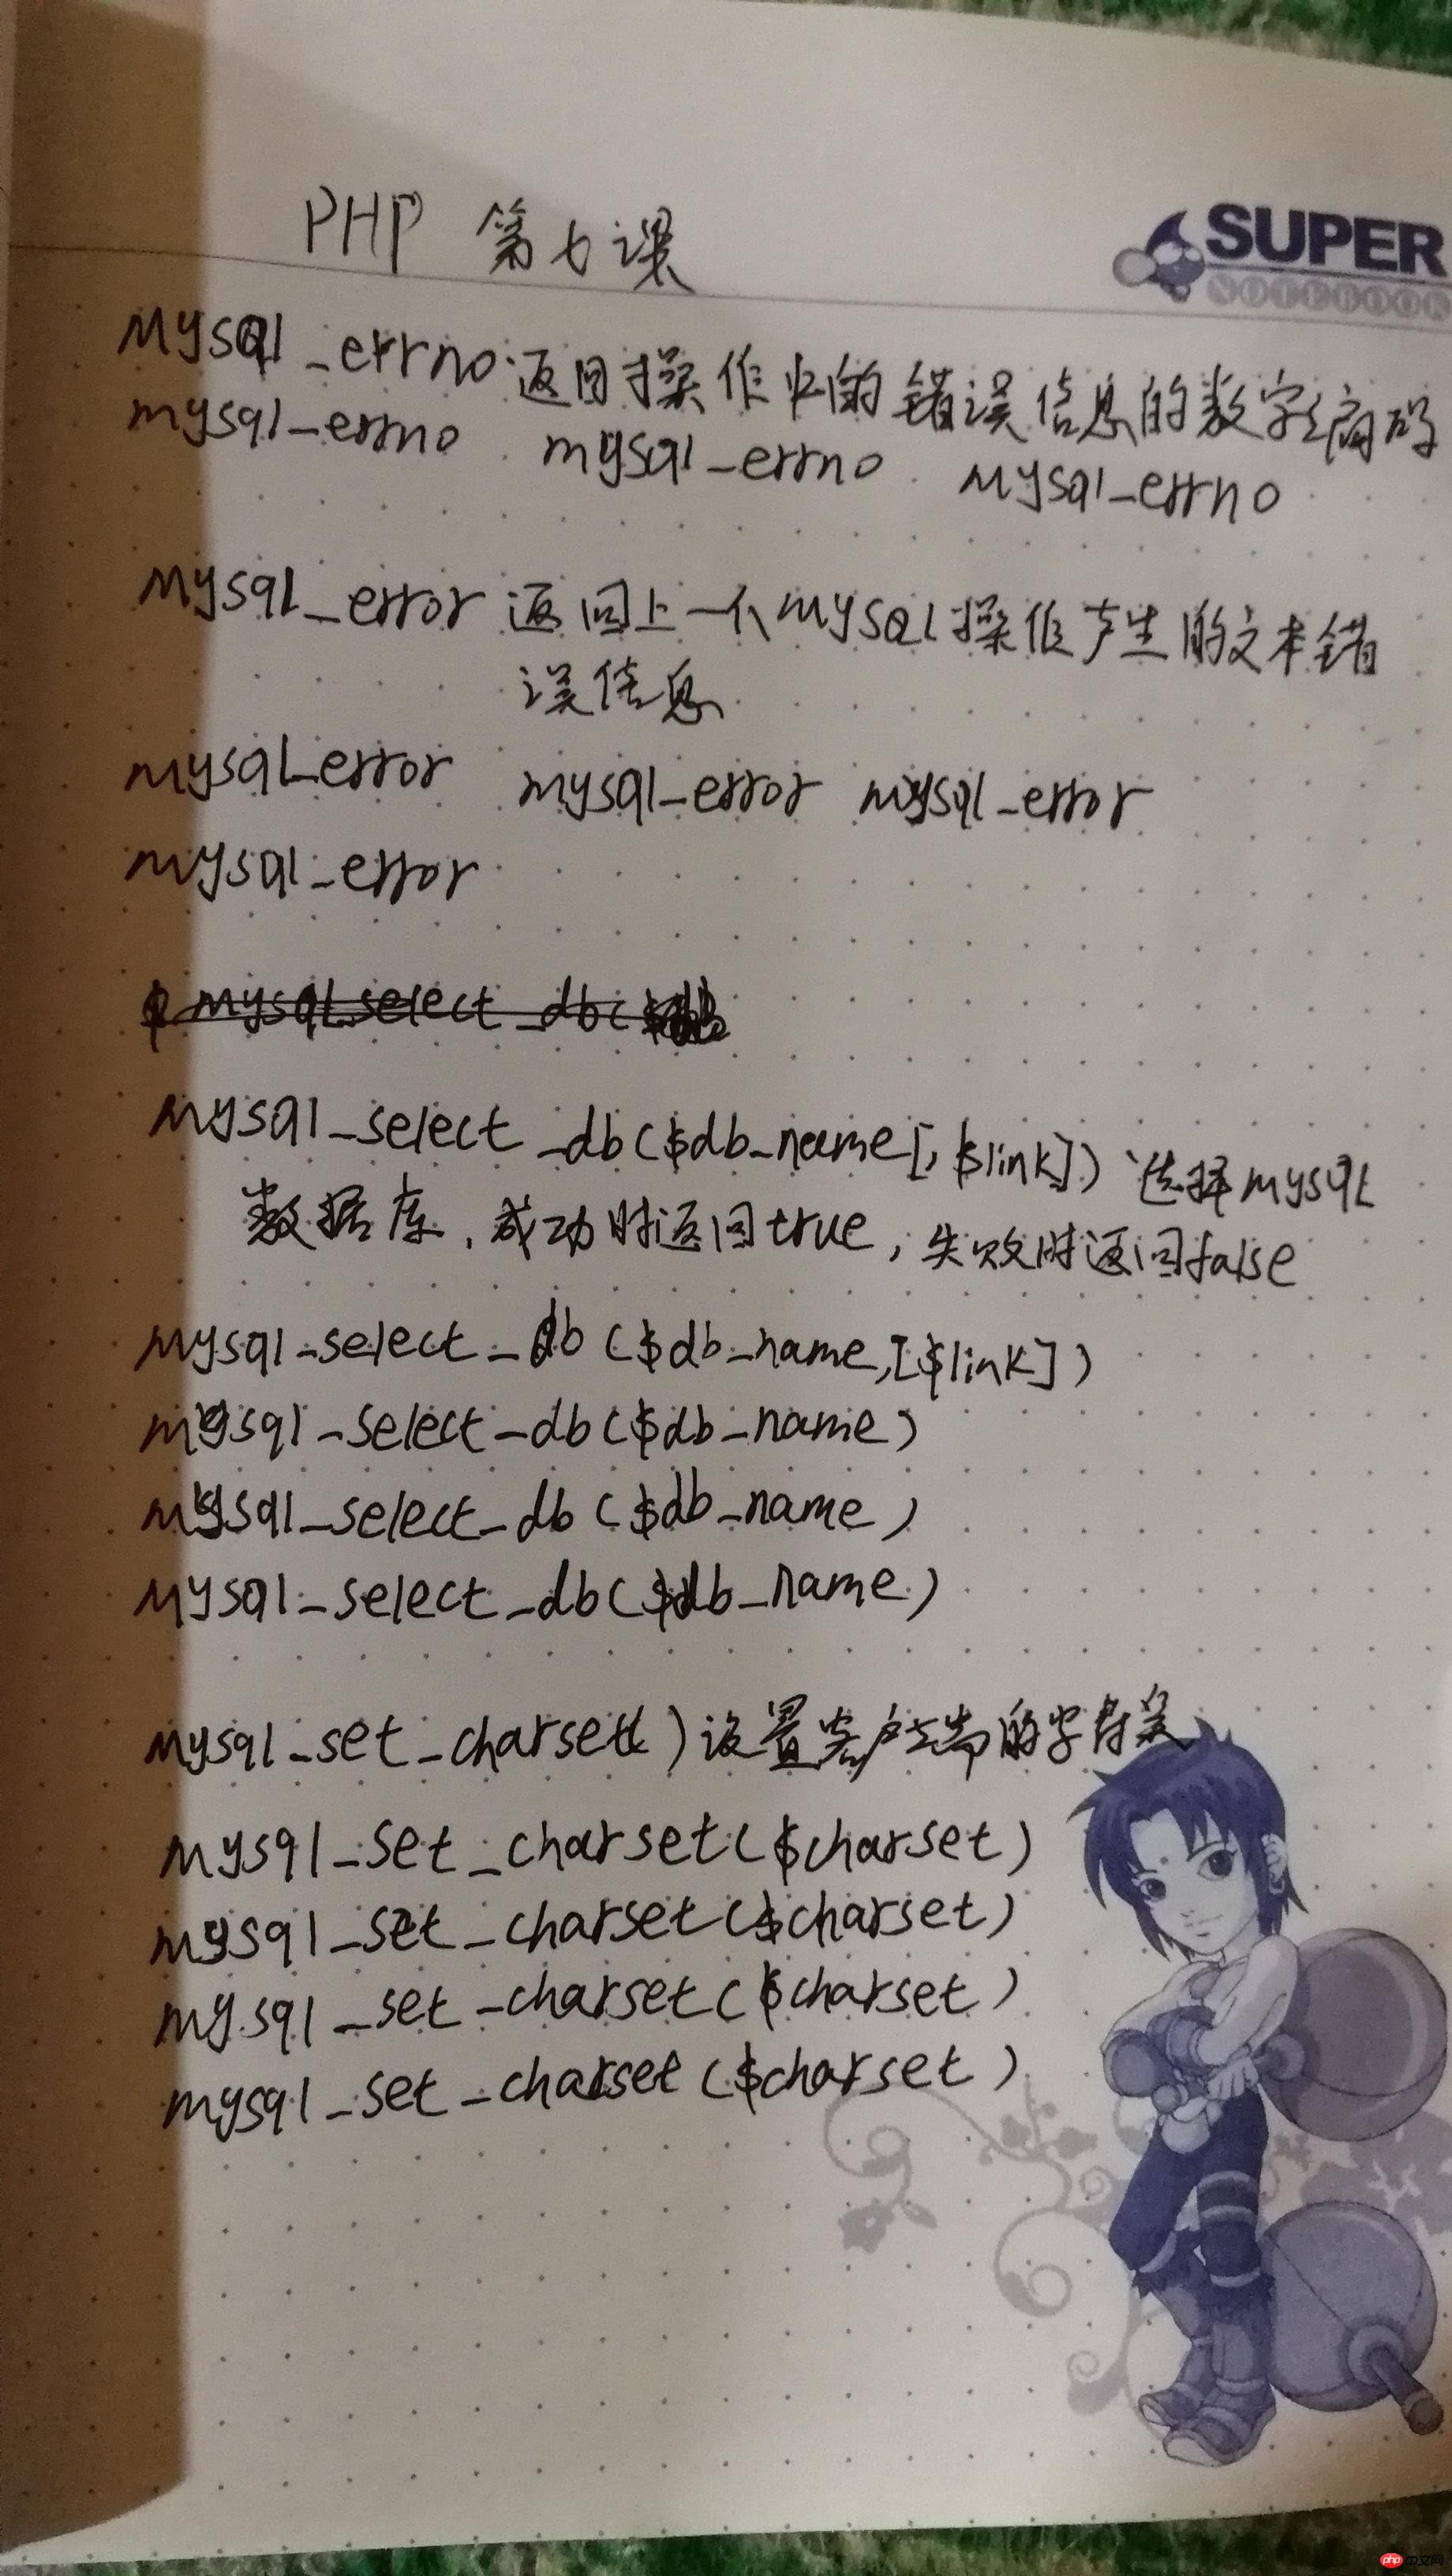 PHP 第七课
SUPER
NOTEBOOK
mysql_errno 返回操作中的错误信息的数字编码
mysql_errno mysql_errno mysql_errno
mysql_error 返回上一个MySQL操作产生的文本错
误信息
mysql_error mysql_error mysql_error
mysql_error
mysql_select_db(
mysql_select_db($db_name[,$link]) 选择mysql
数据库,成功时返回true,失败时返回false
mysql_select_db($db_name,[$link])
mysql_select_db($db_name)
mysql_select_db($db_name)
mysql_select_db($db_name)
mysql_set_charset() 设置客户端的字符集
mysql_set_charset($charset)
mysql_set_charset($charset)
mysql_set_charset($charset)
mysql_set_charset($charset)
php中文网